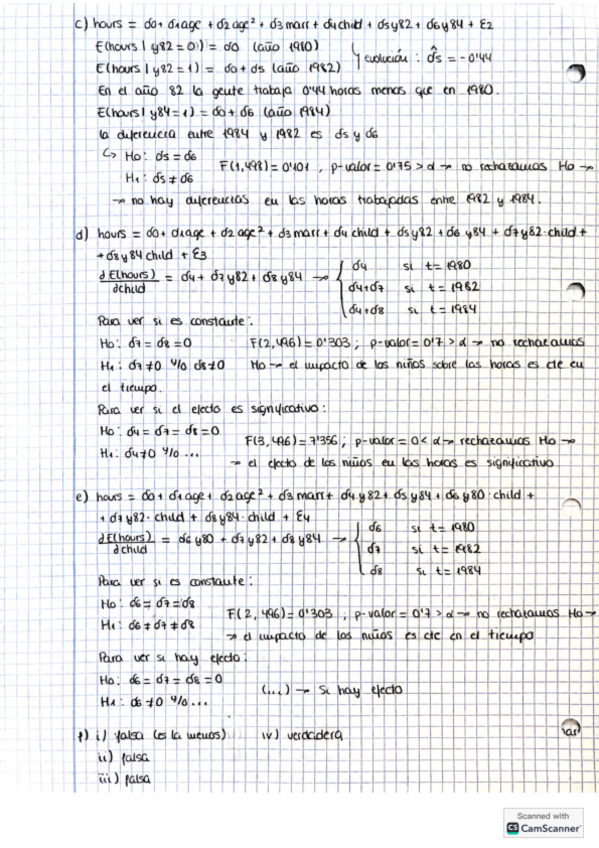 c) hours = α0 + α1age + α2age² + α3marr + α4child + α5y82 + α6y84 + ε2
E(hours | y82=0) = α0 (año 1980)
E(hours | y82=1) = α0 + α5 (año 1982) } evolución: α̂5 = -0'44
En el año 82 la gente trabaja 0'44 horas menos que en 1980.
E(hours | y84=1) = α0 + α6 (año 1984)
la diferencia entre 1984 y 1982 es α5 y α6
↳ H0: α5 = α6
H1: α5 ≠ α6 F(1,498) = 0'101, p-valor = 0'75 > α → no rechazamos H0 →
→ no hay diferencias en las horas trabajadas entre 1982 y 1984.
d) hours = α0 + α1age + α2age² + α3marr + α4child + α5y82 + α6y84 + α7y82·child +
+ α8y84child + ε3
∂E(hours)/∂child = α4 + α7y82 + α8y84 → { α4 si t = 1980
α4+α7 si t = 1982
α4+α8 si t = 1984
Para ver si es constante:
H0: α7 = α8 = 0 F(2,496) = 0'303; p-valor = 0'7 > α → no rechazamos
H1: α7 ≠ 0 y/o α8 ≠ 0 H0 → el impacto de los niños sobre las horas es cte en
el tiempo.
Para ver si el efecto es significativo:
H0: α4 = α7 = α8 = 0
H1: α4 ≠ 0 y/o ... F(3,496) = 7'356; p-valor = 0 < α → rechazamos H0 →
→ el efecto de los niños en las horas es significativo
e) hours = α0 + α1age + α2age² + α3marr + α4y82 + α5y84 + α6y80·child +
+ α7y82·child + α8y84·child + ε4
∂E(hours)/∂child = α6y80 + α7y82 + α8y84 → { α6 si t = 1980
α7 si t = 1982
α8 si t = 1984
Para ver si es constante:
H0: α6 = α7 = α8
H1: α6 ≠ α7 ≠ α8 F(2,496) = 0'303; p-valor = 0'7 > α → no rechazamos H0 →
→ el impacto de los niños es cte en el tiempo
Para ver si hay efecto:
H0: α6 = α7 = α8 = 0
H1: α6 ≠ 0 y/o ... (...) → si hay efecto
f) i) falsa (es la menos) iv) verdadera
ii) falsa
iii) falsa
Scanned with
CS CamScanner